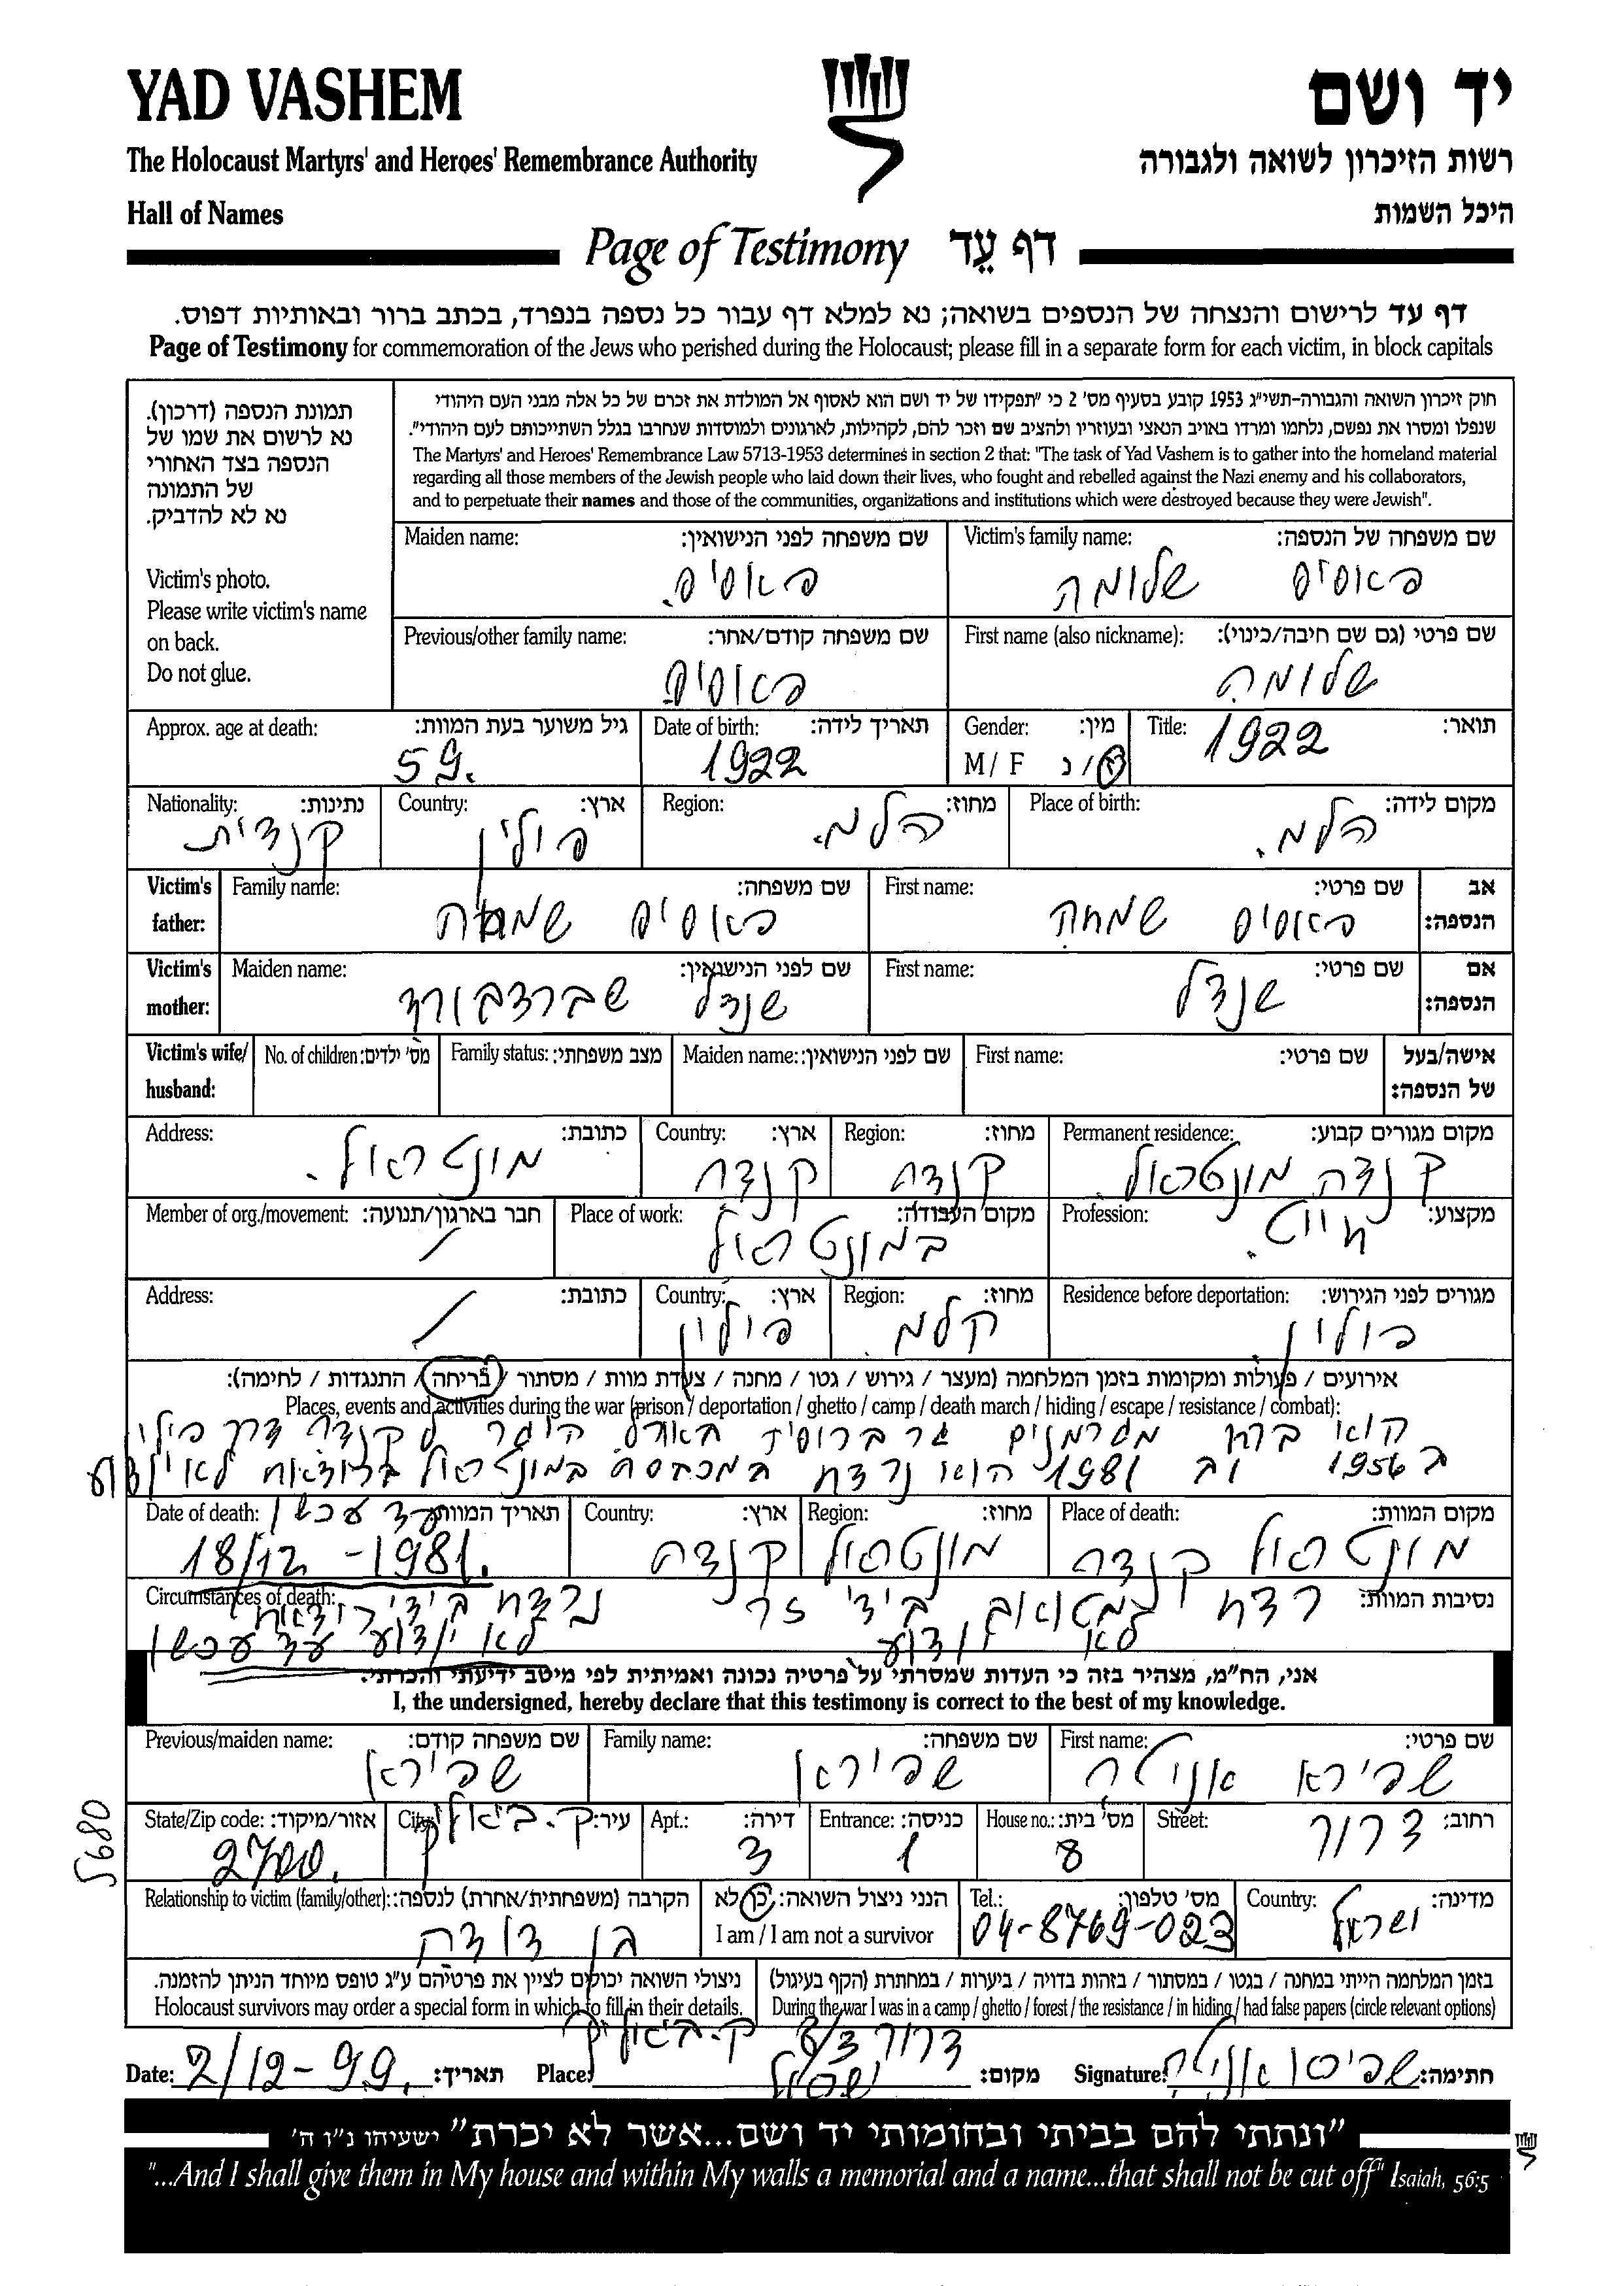 YAD VASHEM
יד ושם
The Holocaust Martyrs' and Heroes' Remembrance Authority
רשות הזיכרון לשואה ולגבורה
Hall of Names
היכל השמות
Page of Testimony דף עֵד
דף עד לרישום והנצחה של הנספים בשואה; נא למלא דף עבור כל נספה בנפרד, בכתב ברור ובאותיות דפוס.
Page of Testimony for commemoration of the Jews who perished during the Holocaust; please fill in a separate form for each victim, in block capitals
תמונת הנספה (דרכון).
נא לרשום את שמו של
הנספה בצד האחורי
של התמונה
נא לא להדביק.
Victim's photo.
Please write victim's name
on back.
Do not glue.
חוק זיכרון השואה והגבורה-תשי"ג 1953 קובע בסעיף מס' 2 כי "תפקידו של יד ושם הוא לאסוף אל המולדת את זכרם של כל אלה מבני העם היהודי
שנפלו ומסרו את נפשם, נלחמו ומרדו באויב הנאצי ובעוזריו ולהציב שם וזכר להם, לקהילות, לארגונים ולמוסדות שנחרבו בגלל השתייכותם לעם היהודי".
The Martyrs' and Heroes' Remembrance Law 5713-1953 determines in section 2 that: "The task of Yad Vashem is to gather into the homeland material
regarding all those members of the Jewish people who laid down their lives, who fought and rebelled against the Nazi enemy and his collaborators,
and to perpetuate their names and those of the communities, organizations and institutions which were destroyed because they were Jewish".
Victim's family name: שם משפחה של הנספה:
פאסיס שלומה
Maiden name: שם משפחה לפני הנישואין:
פאסיס.
First name (also nickname): שם פרטי (גם שם חיבה/כינוי):
שלומה
Previous/other family name: שם משפחה קודם/אחר:
פאסיס
Title: תואר:
1922
Gender: מין:
M / F ז / נ
Date of birth: תאריך לידה:
1922
Approx. age at death: גיל משוער בעת המוות:
59.
Place of birth: מקום לידה:
הלמ.
Region: מחוז:
הלמ.
Country: ארץ:
פולין
Nationality: נתינות:
קנדית
Victim's father: אב הנספה:
First name: שם פרטי:
פאסיס שמחה
Family name: שם משפחה:
פאסיס שמחה
Victim's mother: אם הנספה:
First name: שם פרטי:
שנדל
Maiden name: שם לפני הנישואין:
שנדל שברדבורד
Victim's wife/ husband: אישה/בעל של הנספה:
First name: שם פרטי:
Maiden name: שם לפני הנישואין:
Family status: מצב משפחתי:
No. of children: מס' ילדים:
Permanent residence: מקום מגורים קבוע:
קנדה מונטראול
Region: מחוז:
קנדה
Country: ארץ:
קנדה
Address: כתובת:
מונטראול.
Profession: מקצוע:
חייט.
Place of work: מקום העבודה:
במונטראול
Member of org./movement: חבר בארגון/תנועה:
/
Residence before deportation: מגורים לפני הגירוש:
פולין
Region: מחוז:
קלמ
Country: ארץ:
פולין
Address: כתובת:
/
אירועים / פעולות ומקומות בזמן המלחמה (מעצר / גירוש / גטו / מחנה / צעדת מוות / מסתור / בריחה / התנגדות / לחימה):
Places, events and activities during the war (prison / deportation / ghetto / camp / death march / hiding / escape / resistance / combat):
ברח מגרמנים גר ברוסיה היגר לקנדה דרך פולין
ב 1956 וב 1981 הוא נרצח במונטראול לא ידוע
עד עכשו
Place of death: מקום המוות:
מונטראול קנדה
Region: מחוז:
מונטראול
Country: ארץ:
קנדה
Date of death: תאריך המוות:
18/12 - 1981.
Circumstances of death: נסיבות המוות:
רצח ביד זר נרצח בידי
לא ידוע לא ידוע עד עכשו
אני, הח"מ, מצהיר בזה כי העדות שמסרתי על פרטיה נכונה ואמיתית לפי מיטב ידיעתי והכרתי.
I, the undersigned, hereby declare that this testimony is correct to the best of my knowledge.
First name: שם פרטי:
שפירא אניטה
Family name: שם משפחה:
שפירא
Previous/maiden name: שם משפחה קודם:
שפירא
Street: רחוב:
דרור
House no.: מס' בית:
8
Entrance: כניסה:
1
Apt.: דירה:
3
City: עיר:
ק. ביאליק
State/Zip code: אזור/מיקוד:
2700.
5680
Country: מדינה:
ישראל
Tel.: מס' טלפון:
04-8769-023
הנני ניצול השואה: כן / לא
I am / I am not a survivor
Relationship to victim (family/other): הקרבה (משפחתית/אחרת) לנספה:
בן דודה
בזמן המלחמה הייתי במחנה / בגטו / במסתור / בזהות בדויה / ביערות / במחתרת (הקף בעיגול)
During the war I was in a camp / ghetto / forest / the resistance / in hiding / had false papers (circle relevant options)
ניצולי השואה יכולים לציין את פרטיהם ע"ג טופס מיוחד הניתן להזמנה.
Holocaust survivors may order a special form in which to fill in their details.
Date: 2/12-99. תאריך:
Place: ק. ביאליק דרור 8/3 ישראל מקום:
Signature: שפירא אניטה חתימה:
"ונתתי להם בביתי ובחומותי יד ושם...אשר לא יכרת" ישעיהו נ"ו ה'
"...And I shall give them in My house and within My walls a memorial and a name...that shall not be cut off" Isaiah, 56:5